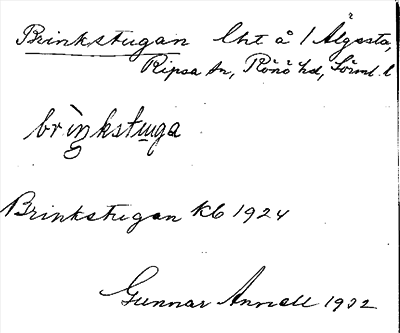 Brinkstugan lht å 1 Älgesta,
Ripsa sn, Rönö hd, Sörml. l
brìŋkstu̲ga
Brinkstugan kb 1924
Gunnar Annell 1932